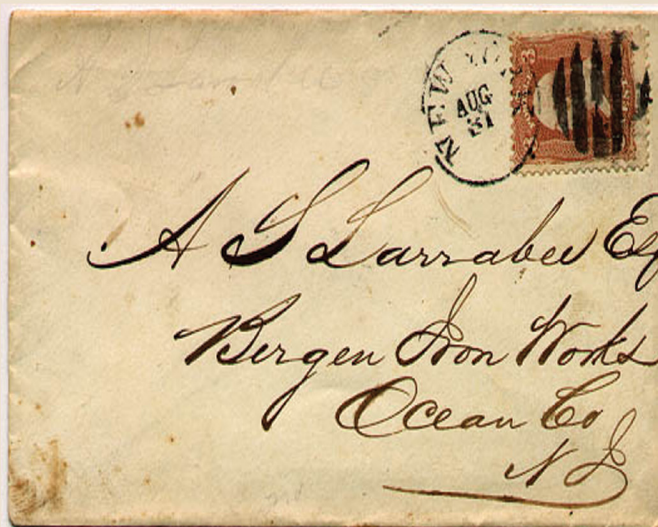 NEW YORK
AUG
31
3
A S Larrabee Esq
Bergen Iron Works
Ocean Co
N J